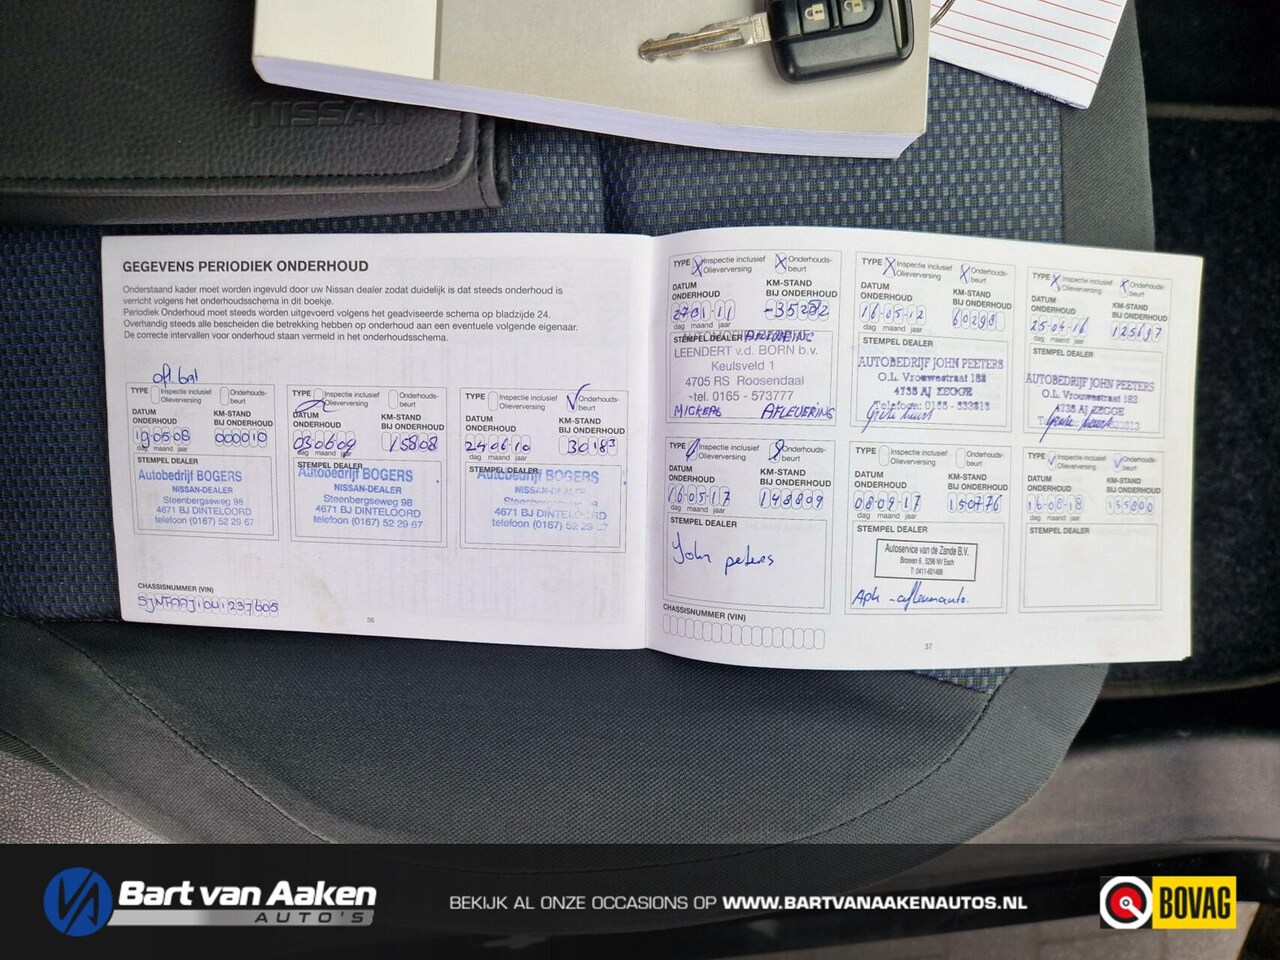 NISSAN
GEGEVENS PERIODIEK ONDERHOUD
Onderstaand kader moet worden ingevuld door uw Nissan dealer zodat duidelijk is dat steeds onderhoud is
verricht volgens het onderhoudsschema in dit boekje.
Periodiek Onderhoud moet steeds worden uitgevoerd volgens het geadviseerde schema op bladzijde 24.
Overhandig steeds alle bescheiden die betrekking hebben op onderhoud aan een eventuele volgende eigenaar.
De correcte intervallen voor onderhoud staan vermeld in het onderhoudsschema.
TYPE Inspectie inclusief Onderhouds-
Olieverversing beurt
DATUM KM-STAND
ONDERHOUD BIJ ONDERHOUD
190508 000010
dag maand jaar
STEMPEL DEALER
Autobedrijf BOGERS
NISSAN-DEALER
Steenbergseweg 98
4671 BJ DINTELOORD
telefoon (0167) 52 29 67
TYPE Inspectie inclusief Onderhouds-
Olieverversing beurt
DATUM KM-STAND
ONDERHOUD BIJ ONDERHOUD
030609 15808
dag maand jaar
STEMPEL DEALER
Autobedrijf BOGERS
NISSAN-DEALER
Steenbergseweg 98
4671 BJ DINTELOORD
telefoon (0167) 52 29 67
TYPE Inspectie inclusief Onderhouds-
Olieverversing beurt
DATUM KM-STAND
ONDERHOUD BIJ ONDERHOUD
240610 30183
dag maand jaar
STEMPEL DEALER
Autobedrijf BOGERS
NISSAN-DEALER
Steenbergseweg 98
4671 BJ DINTELOORD
telefoon (0167) 52 29 67
CHASSISNUMMER (VIN)
36
TYPE Inspectie inclusief Onderhouds-
Olieverversing beurt
DATUM KM-STAND
ONDERHOUD BIJ ONDERHOUD
dag maand jaar
STEMPEL DEALER
LEENDERT v.d. BORN b.v.
Keulsveld 1
4705 RS Roosendaal
tel. 0165 - 573777
AFLEVERING
TYPE Inspectie inclusief Onderhouds-
Olieverversing beurt
DATUM KM-STAND
ONDERHOUD BIJ ONDERHOUD
16-05-12 60298
dag maand jaar
STEMPEL DEALER
AUTOBEDRIJF JOHN PEETERS
O.L. Vrouwestraat 182
4735 AJ ZEGGE
Telefoon: 0165 - 533213
TYPE Inspectie inclusief Onderhouds-
Olieverversing beurt
DATUM KM-STAND
ONDERHOUD BIJ ONDERHOUD
25-04-16 125697
dag maand jaar
STEMPEL DEALER
AUTOBEDRIJF JOHN PEETERS
O.L. Vrouwestraat 182
4735 AJ ZEGGE
TYPE Inspectie inclusief Onderhouds-
Olieverversing beurt
DATUM KM-STAND
ONDERHOUD BIJ ONDERHOUD
160517 148809
dag maand jaar
STEMPEL DEALER
John peters
CHASSISNUMMER (VIN)
TYPE Inspectie inclusief Onderhouds-
Olieverversing beurt
DATUM KM-STAND
ONDERHOUD BIJ ONDERHOUD
080917 150776
dag maand jaar
STEMPEL DEALER
Autoservice van de Zande B.V.
T: 0411-601488
TYPE Inspectie inclusief Onderhouds-
Olieverversing beurt
DATUM KM-STAND
ONDERHOUD BIJ ONDERHOUD
16-08-18 155000
dag maand jaar
STEMPEL DEALER
37
Bart van Aaken
AUTO'S
BEKIJK AL ONZE OCCASIONS OP WWW.BARTVANAAKENAUTOS.NL
BOVAG